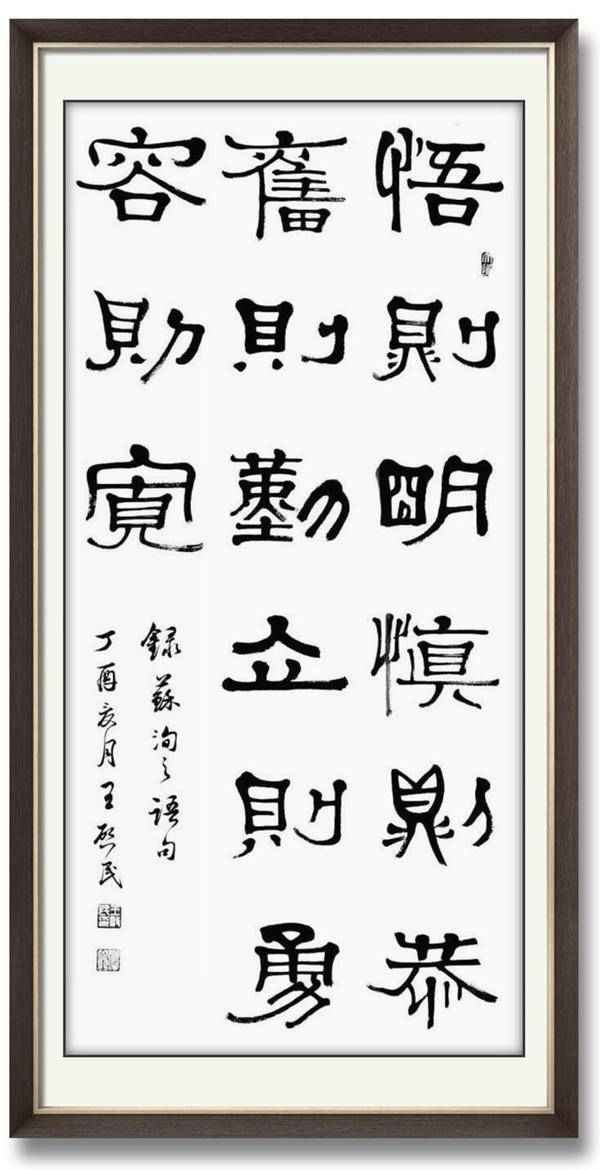 悟則明慎則恭
奮則勤立則勇
容則寬
錄蘇洵之語句
丁酉亥月王啓民